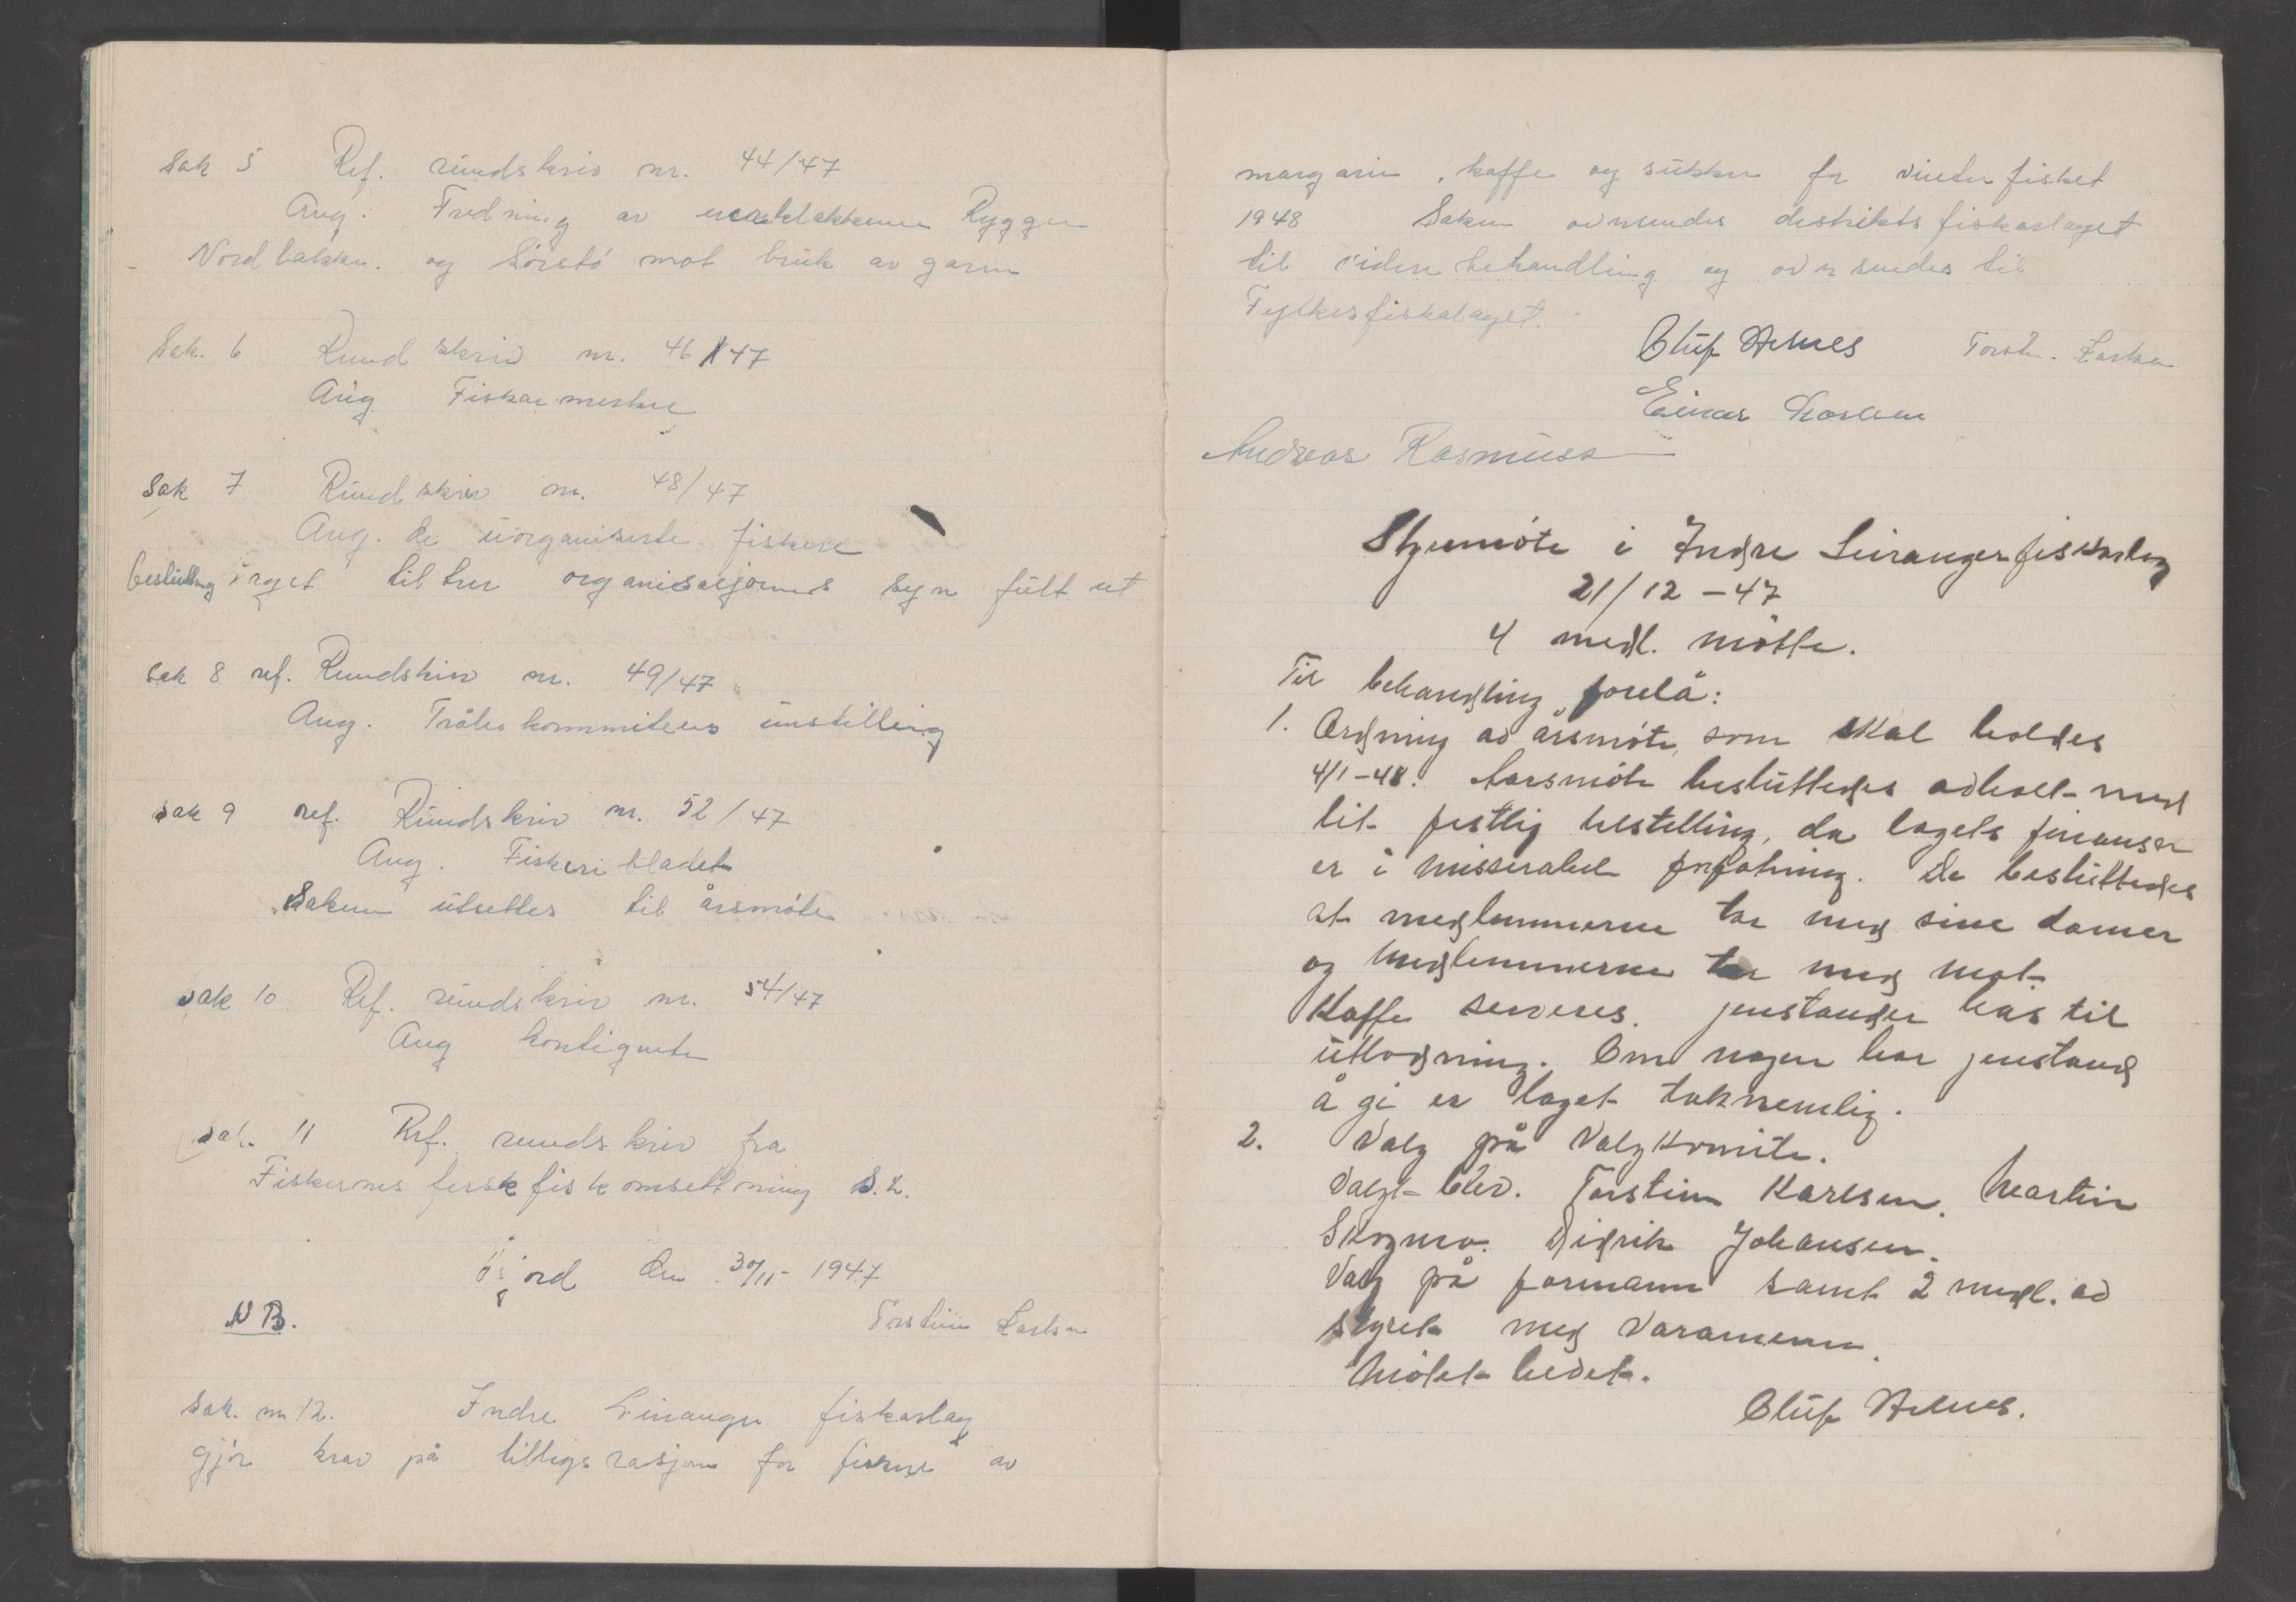 Sak 5 Ref. rundskriv nr. 44/47
Ang. Fredning av Ryggen
Nordbakken. og Sørstö mot bruk av garn
Sak. 6 Rundskriv nr. 46/47
Ang Fiskarmerke
Sak 7 Rundskriv nr. 48/47
Ang. de uorganiserte fiskere
beslutning laget tiltrer organisasjonens syn fult ut
Sak 8 ref. Rundskriv nr. 49/47
Ang. Trålerkommiteens instilling
Sak 9 ref. Rundskriv nr. 52/47
Ang. Fiskeribladet
Saken utsettes til årsmöte
Sak 10 Ref. rundskriv nr. 54/47
Ang kontigenten
Sak. 11 Ref. rundskriv fra
Fiskernes ferskfiskomsettning S.L.
den 30/11- 1947
NB. Torstein Karlsen
Sak. nr 12. Indre Leiranger fiskarlag
gjör krav på tilligsrasjon for fiskere av
margarin, kaffe og sukker for vinterfisket
1948 Saken oversendes destriktsfiskarlaget
til videre behandling og oversendes til
Fylkesfiskalaget.
Oluf Torst. Karlsen
Einar
Andreas Rasmuss
Styremöte i Indre Leiranger fiskarlag
21/12 - 47
4 medl. mötte.
Til behandling forelå:
1. Ordning av årsmöte, som skal holdes
4/1-48. Aarsmöte besluttedes avholt med
lit festlig tilstelling, da lagets finanser
er i misserabel forfatning. De besluttedes
at medlemmerne tar med sine damer
og medlemmerne tar med mat.
Kaffe serveres. jenstander has til
utlodning. Om nogen har jenstand
å gi er laget taknemlig.
2. Valg på Valgkomite.
Valgt blev. Torstein Karlsen. Martin
Skogmo. Didrik Johansen.
Valg på formann samt 2 medl. av
styret med Varamenn.
Mötet hevet.
Oluf